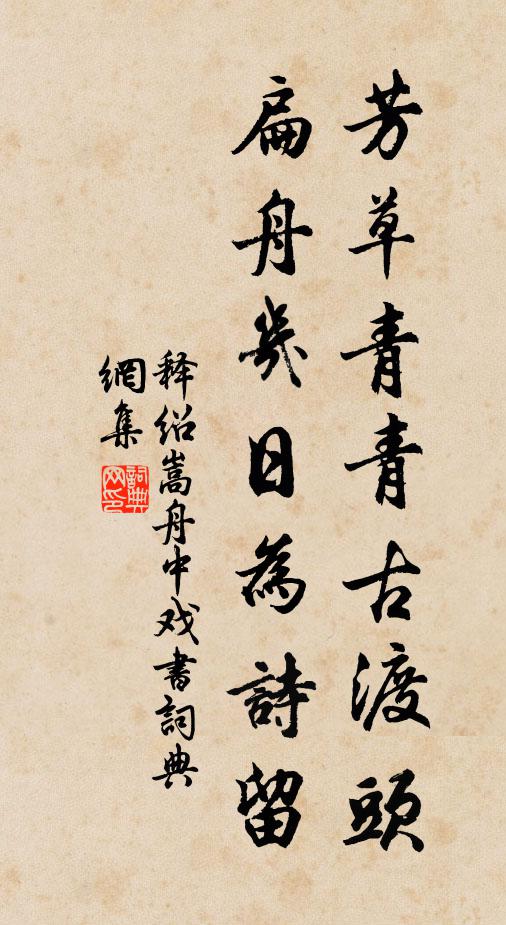 芳草青青古渡頭
扁舟幾日為詩留
释绍嵩舟中戏書詞典
網集
詞典网印